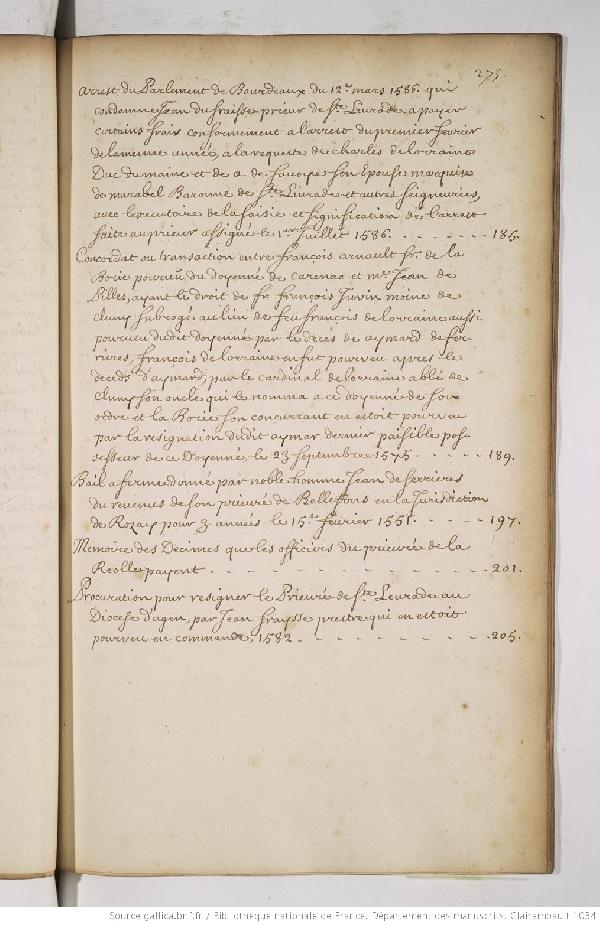 275.
Arrest du Parlement de Bourdeaux du 12e. mars 1586. qui
condamne Jean du fraisse prieur de Ste. Livrade a payer
certains frais conformement a larrest du premier fevrier
de la mesme année, a la requeste de charles de lorraine
Duc du maine et de a. de Savoye son Epouse marquise
de marabel Baronne de Ste. Livrade et autres seigneuries,
avec lexecutoire de la saisie et signification de l'arrest
faite au prieur assigné le 1er Juillet 1586. - - - - - - - 185.
Concordat ou transaction entre françois arnault Sr. de la
Borie pourveu du doyenné de Carenac et me. Jean de
Billes, ayant le droit de fr. françois Juvin moine de
Cluny subrogé au lieu de feu françois de lorraine aussi
pourveu dudit doyenné par le decés de aymard de fer-
rieres, françois de lorraine en fut pourveu apres le
decéds d'aymard, par le cardinal de lorraine abbé de
Cluny son oncle qui le nomma a ce doyenné de son
ordre et la Borie son concurrant en estoit pourveu
par la resignation dudit aymar dernier paisible pos-
sesseur de ce Doyenné, le 23 septembre 1575. - - - - - 189.
Bail a ferme donné par noble homme Jean de ferrieres
du revenus de son prieuré de Bellefons en la Jurisdiction
de Rozay pour 3 années le 15e. fevrier 1551. - - - - - 197.
Memoire des Decimes que les officiers du prieuré de la
Reolle payent. - - - - - - - - - - 201.
Procuration pour resigner le Prieuré de Ste. Levrade au
Diocese d'agen, par Jean fraysse prestre qui en estoit
pourveu en commande, 1582. - - - - - - - - 205.
Source gallica.bnf.fr / Bibliothèque nationale de France. Département des manuscrits. Clairambault 1034